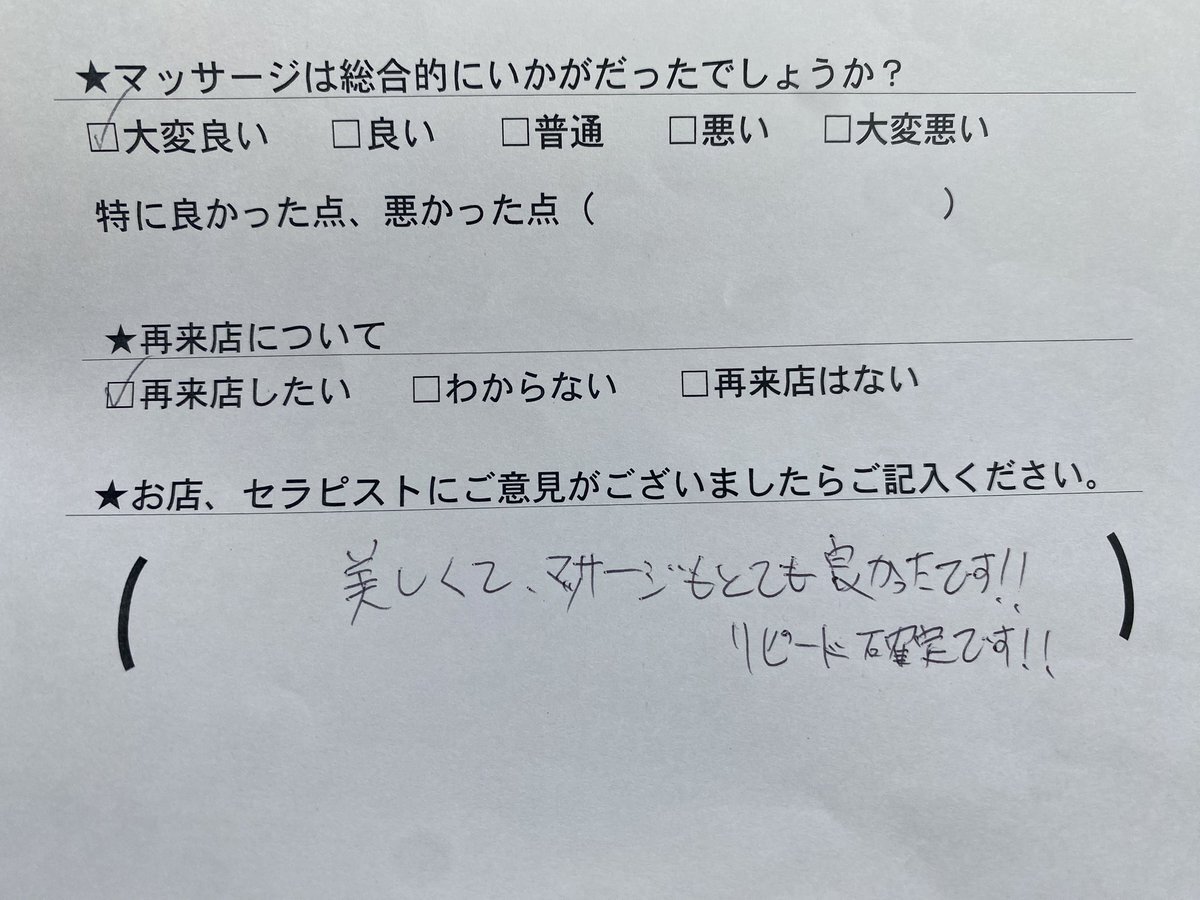 ★マッサージは総合的にいかがだったでしょうか？
☑大変良い □良い □普通 □悪い □大変悪い
特に良かった点、悪かった点（ ）
★再来店について
☑再来店したい □わからない □再来店はない
★お店、セラピストにご意見がございましたらご記入ください。
( 美しくて、マッサージもとても良かったです!! )
リピード確定です!!